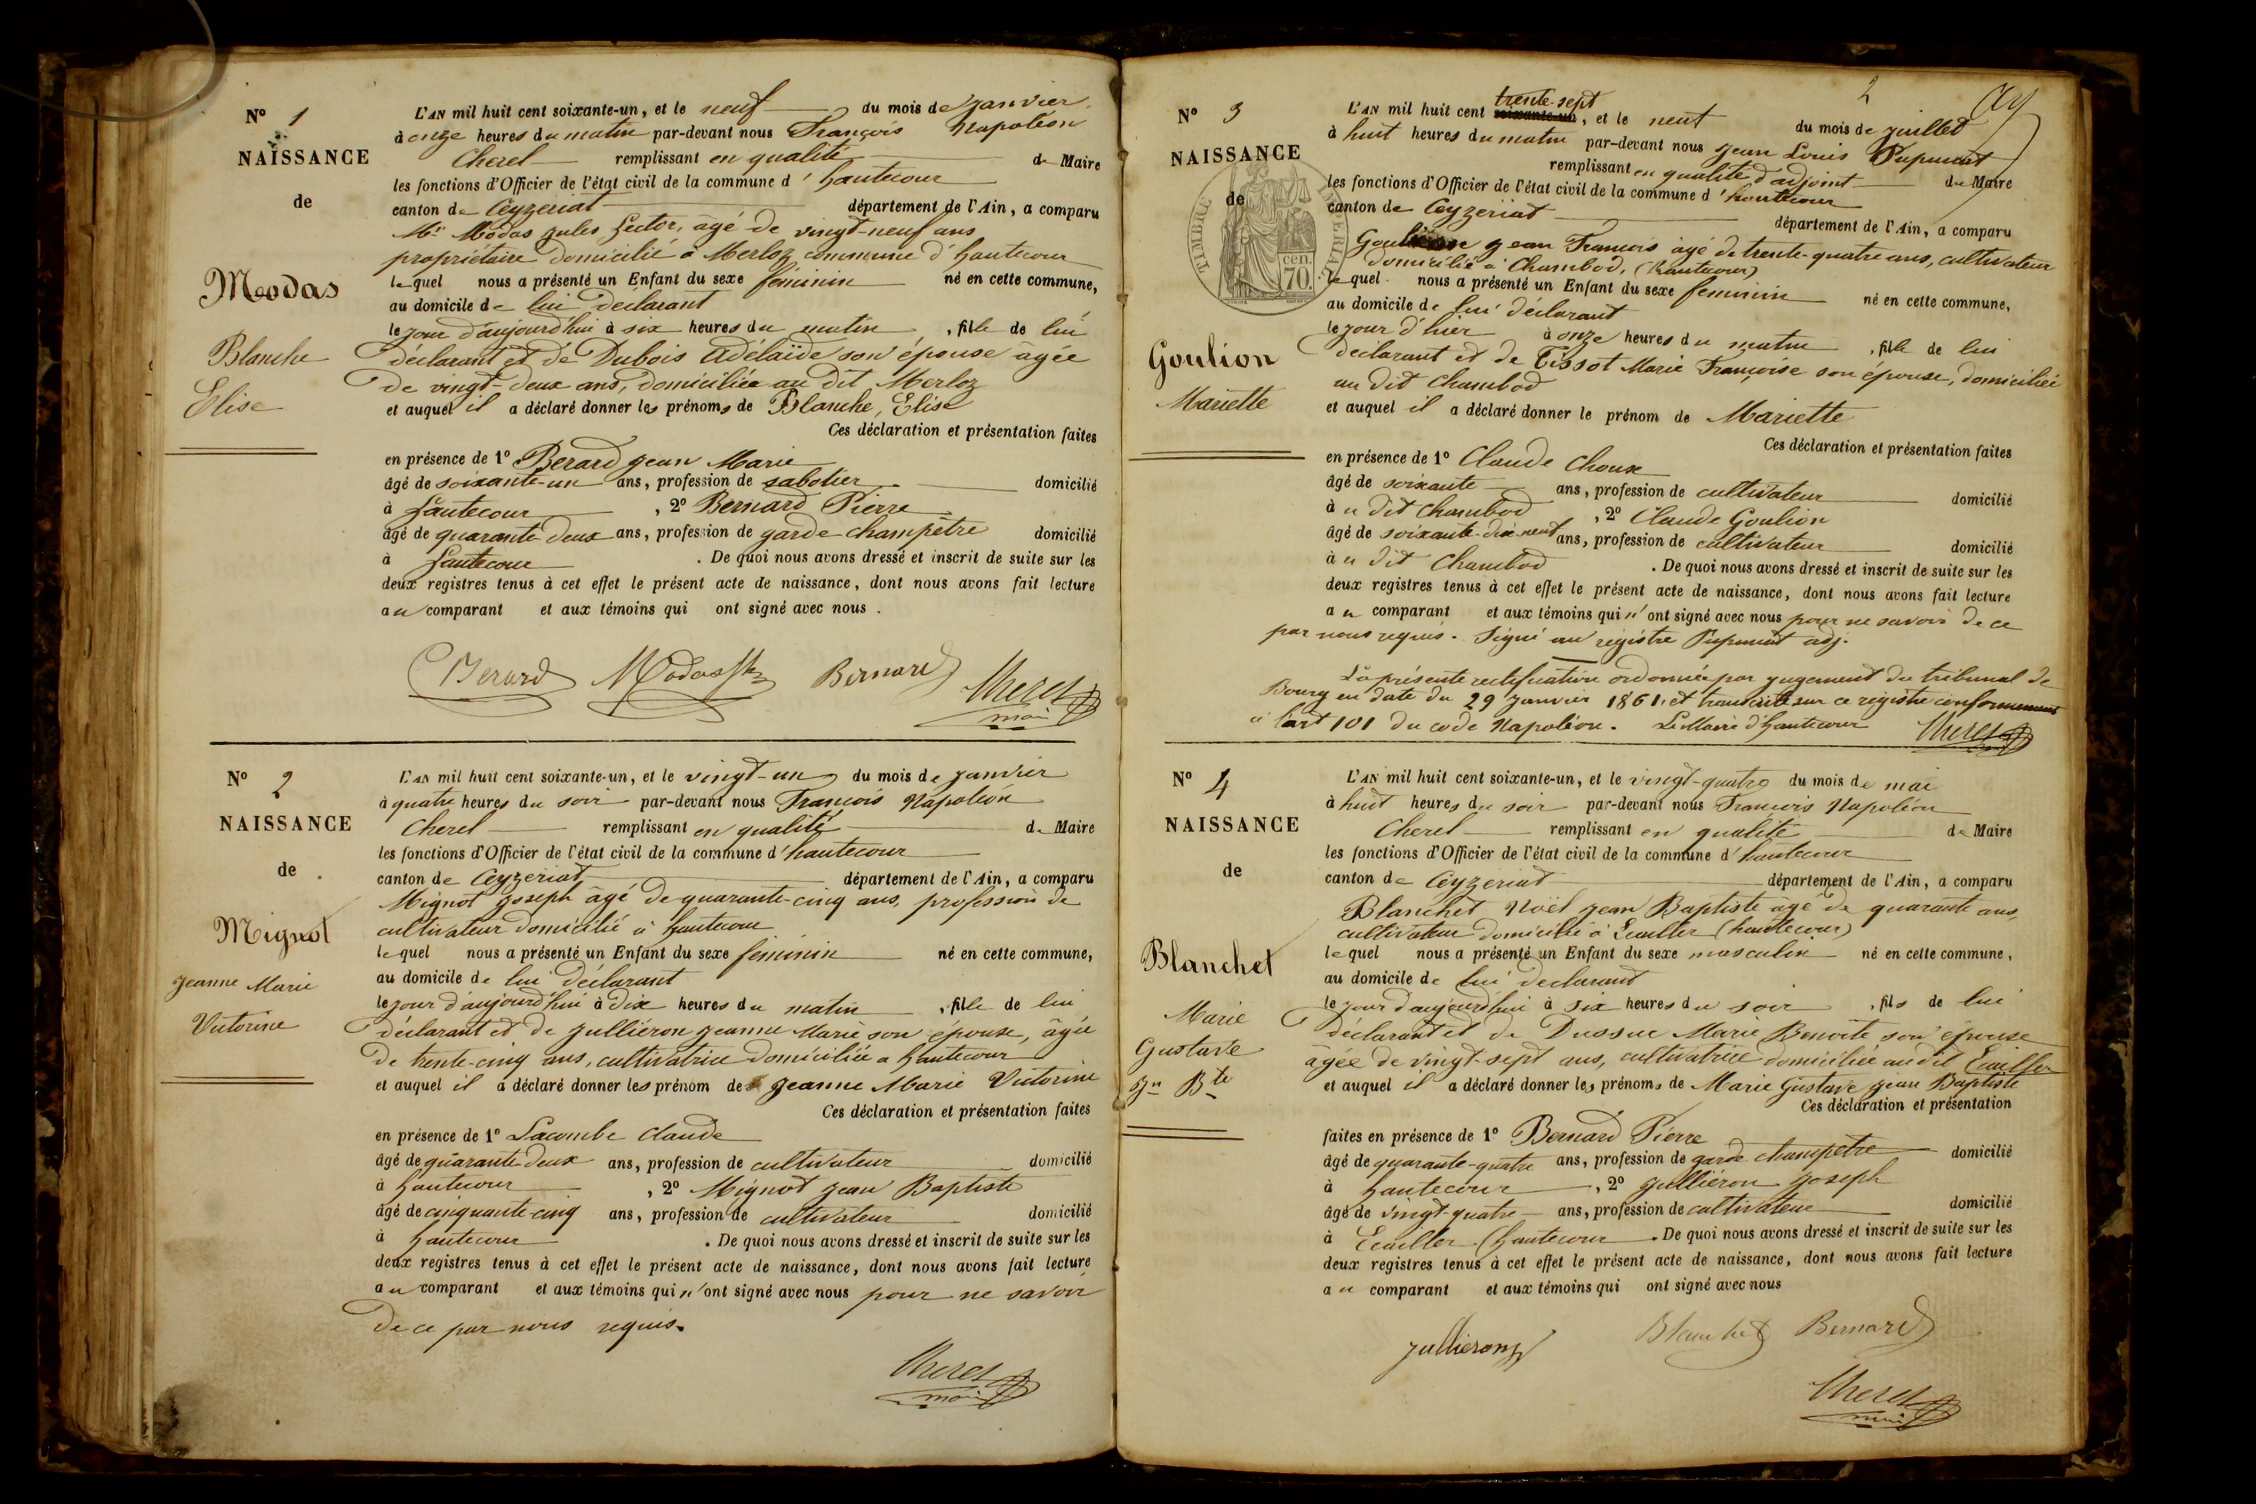 N° 1
NAISSANCE
de
Modas
Blanche
Elise
L'AN mil huit cent soixante-un, et le neuf du mois de janvier
à onze heures du matin par-devant nous François Napoléon
Cherel remplissant en qualité de Maire
les fonctions d'Officier de l'état civil de la commune d'hautecour
canton de Ceyzeriat département de l'Ain, a comparu
Mr Modas jules hector, âgé de vingt-neuf ans
propriétaire domicilié à Merloz commune d'hautecour
lequel nous a présenté un Enfant du sexe féminin né en cette commune,
au domicile de lui déclarant
le jour d'aujourd'hui à six heures du matin, fille de lui
déclarant et de Dubois Adélaïde son épouse âgée
de vingt-deux ans, domiciliée au dit Merloz
et auquel il a déclaré donner les prénoms de Blanche, Elise
Ces déclaration et présentation faites
en présence de 1° Berard jean Marie
âgé de soixante-un ans, profession de sabotier domicilié
à hautecour, 2° Bernard Pierre
âgé de quarante deux ans, profession de garde champêtre domicilié
à hautecour. De quoi nous avons dressé et inscrit de suite sur les
deux registres tenus à cet effet le présent acte de naissance, dont nous avons fait lecture
au comparant et aux témoins qui ont signé avec nous.
Berard Modas Bernard Cherel
maire
N° 2
NAISSANCE
de
Mignot
jeanne Marie
Victorine
L'AN mil huit cent soixante-un, et le vingt-un du mois de janvier
à quatre heures du soir par-devant nous François Napoléon
Cherel remplissant en qualité de Maire
les fonctions d'Officier de l'état civil de la commune d'hautecour
canton de Ceyzeriat département de l'Ain, a comparu
Mignot joseph âgé de quarante-cinq ans, profession de
cultivateur domicilié à hautecour
lequel nous a présenté un Enfant du sexe féminin né en cette commune,
au domicile de lui déclarant
le jour d'aujourd'hui à dix heures du matin, fille de lui
déclarant et de julliéron jeanne Marie son épouse, âgée
de trente-cinq ans, cultivatrice domiciliée a hautecour
et auquel il a déclaré donner les prénom de jeanne Marie Victorine
Ces déclaration et présentation faites
en présence de 1° Lacombe Claude
âgé de quarante deux ans, profession de cultivateur domicilié
à hautecour, 2° Mignot jean Baptiste
âgé de cinquante-cinq ans, profession de cultivateur domicilié
à hautecour. De quoi nous avons dressé et inscrit de suite sur les
deux registres tenus à cet effet le présent acte de naissance, dont nous avons fait lecture
au comparant et aux témoins qui n'ont signé avec nous pour ne savoir
de ce par nous requis.
Cherel
maire
2
N° 3
NAISSANCE
de
TIMBRE IMPERIAL
70 cen.
Goulion
Mariette
trente-sept
L'AN mil huit cent soixante-un, et le neuf du mois de juillet
à huit heures du matin par-devant nous jean Louis Pupunat
remplissant en qualité d'adjoint du Maire
les fonctions d'Officier de l'état civil de la commune d'hautecour
canton de Ceyzeriat département de l'Ain, a comparu
jean François âgé de trente-quatre ans, cultivateur
domicilié à Chambod, (hautecour)
lequel nous a présenté un Enfant du sexe féminin né en cette commune,
au domicile de lui déclarant
le jour d'hier à onze heures du matin, fille de lui
déclarant et de Tissot Marie Françoise son épouse, domiciliée
au dit Chambod
et auquel il a déclaré donner le prénom de Mariette
Ces déclaration et présentation faites
en présence de 1° Claude Choux
âgé de soixante ans, profession de cultivateur domicilié
à u dit Chambod, 2° Claude Goulion
âgé de soixante-dix-neuf ans, profession de cultivateur domicilié
à u dit Chambod. De quoi nous avons dressé et inscrit de suite sur les
deux registres tenus à cet effet le présent acte de naissance, dont nous avons fait lecture
au comparant et aux témoins qui n'ont signé avec nous pour ne savoir de ce
par nous requis. Signé au registre Pupunat adj.
La présente rectification ordonnée par jugement du tribunal de
Bourg en date du 29 janvier 1861, et transcrite sur ce registre conformement
à l'art 101 du code Napoléon. Le Maire d'hautecour Cherel
N° 4
NAISSANCE
de
Blanchet
Marie
Gustave
jn Bte
L'AN mil huit cent soixante-un, et le vingt-quatre du mois de mai
à huit heures du soir par-devant nous François Napoléon
Cherel remplissant en qualité de Maire
les fonctions d'Officier de l'état civil de la commune d'hautecour
canton de Ceyzeriat département de l'Ain, a comparu
Blanchet Noël jean Baptiste âgé de quarante ans,
cultivateur domicilié à Ecuiller (hautecour)
lequel nous a présenté un Enfant du sexe masculin né en cette commune,
au domicile de lui déclarant
le jour d'aujourd'hui à six heures du soir, fils de lui
déclarant et de Dussuc Marie Benoite son épouse
âgée de vingt-sept ans, cultivatrice domiciliée audit Ecuiller
et auquel il a déclaré donner les prénoms de Marie Gustave jean Baptiste
Ces déclaration et présentation
faites en présence de 1° Bernard Pierre
âgé de quarante-quatre ans, profession de garde champêtre domicilié
à hautecour, 2° julliéron joseph
âgé de vingt-quatre ans, profession de cultivateur domicilié
à Ecuiller (hautecour. De quoi nous avons dressé et inscrit de suite sur les
deux registres tenus à cet effet le présent acte de naissance, dont nous avons fait lecture
au comparant et aux témoins qui ont signé avec nous
julliéron Blanchet Bernard
Cherel
maire